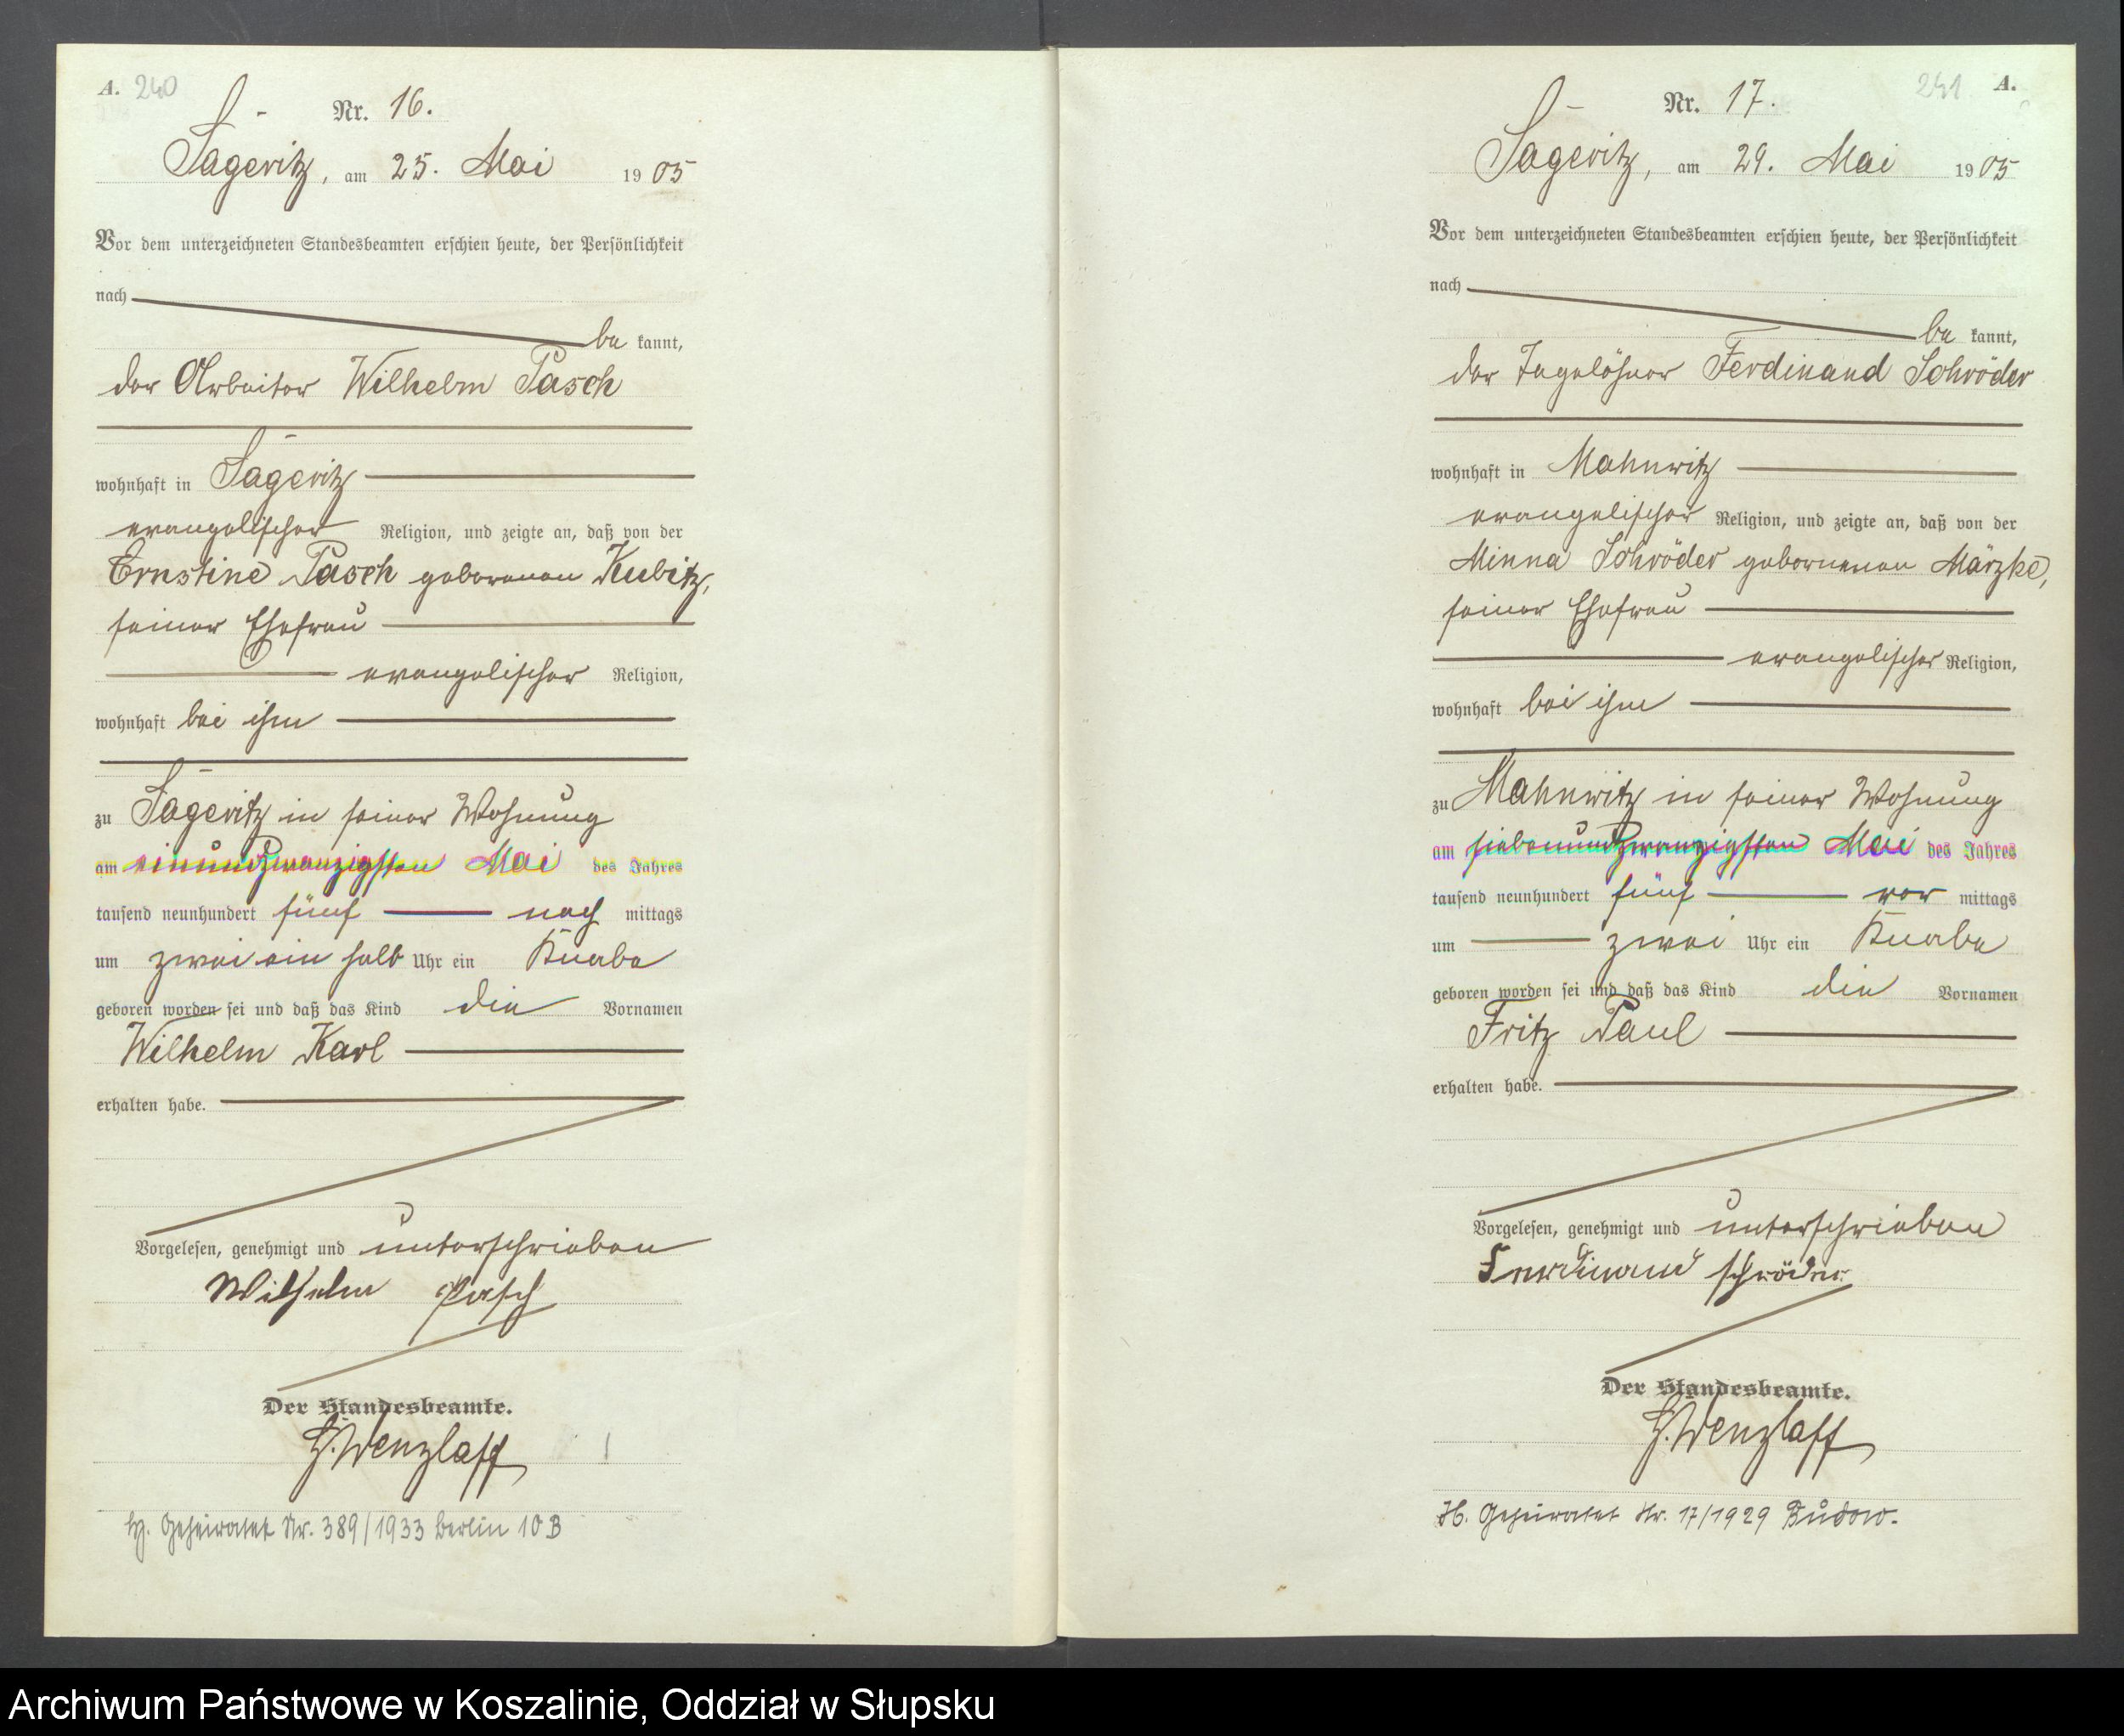 A. 240
Nr. 16.
Sageritz, am 25. Mai 1905
Vor dem unterzeichneten Standesbeamten erschien heute, der Persönlichkeit
nach
be kannt,
der Arbeiter Wilhelm Pasch
wohnhaft in Sageritz
evangelischer Religion, und zeigte an, daß von der
Ernstine Pasch geborenen Kubitz,
seiner Ehefrau
evangelischer Religion,
wohnhaft bei ihm
zu Sageritz in seiner Wohnung
am einundzwanzigsten Mai des Jahres
tausend neunhundert fünf nach mittags
um zwei ein halb Uhr ein Knabe
geboren worden sei und daß das Kind die Vornamen
Wilhelm Karl
erhalten habe.
Vorgelesen, genehmigt und unterschrieben
Wilhelm Pasch
Der Standesbeamte.
Wenzlaff
Geheiratet Nr. 389/1933 Berlin 10 B
241 A.
Nr. 17.
Sageritz, am 29. Mai 1905
Vor dem unterzeichneten Standesbeamten erschien heute, der Persönlichkeit
nach
be kannt,
der Tagelöhner Ferdinand Schröder
wohnhaft in Mahnwitz
evangelischer Religion, und zeigte an, daß von der
Minna Schröder geborenen Märzke,
seiner Ehefrau
evangelischer Religion,
wohnhaft bei ihm
zu Mahnwitz in seiner Wohnung
am siebenundzwanzigsten Mai des Jahres
tausend neunhundert fünf vor mittags
um zwei Uhr ein Knabe
geboren worden sei und daß das Kind die Vornamen
Fritz Paul
erhalten habe.
Vorgelesen, genehmigt und unterschrieben
Ferdinand Schröder
Der Standesbeamte.
Wenzlaff
H. Geheiratet Nr. 17/1929 Budow.
Archiwum Państwowe w Koszalinie, Oddział w Słupsku